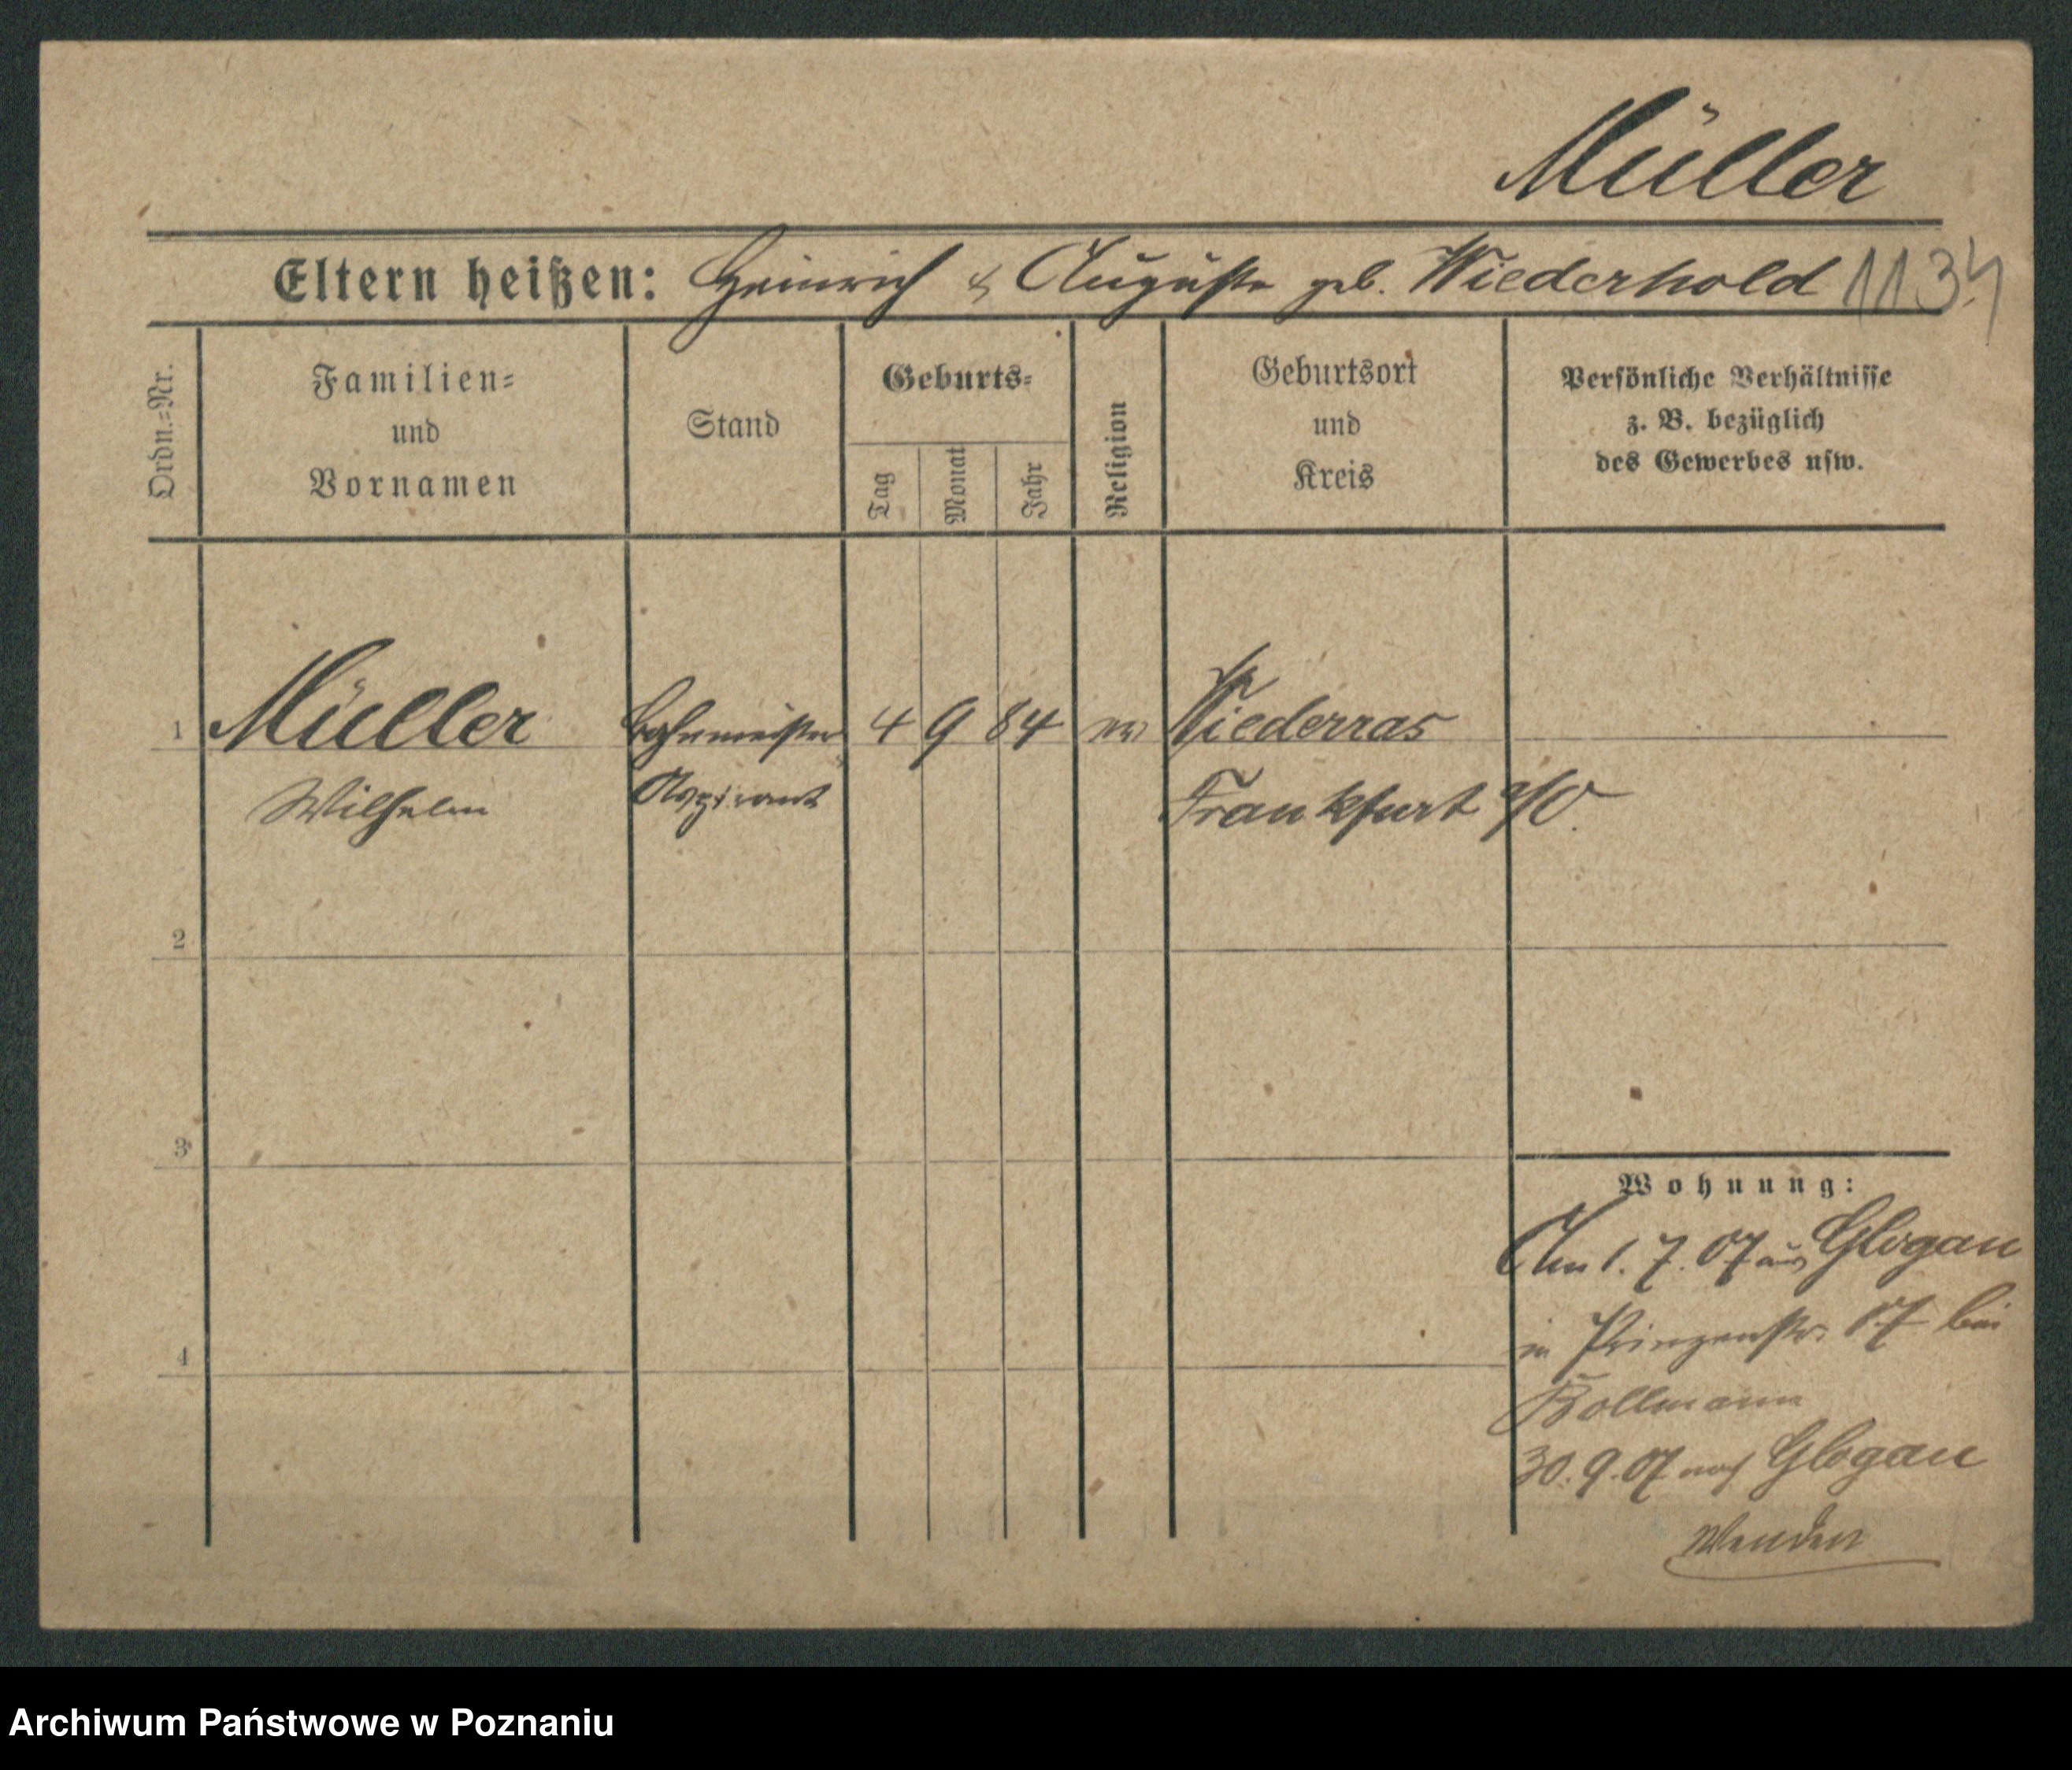 Müller
Eltern heißen: Heinrich & Auguste geb. Wiederhold 1134
Ordn.=Nr.
Familien=
und
Vornamen
Stand
Geburts=
Tag
Monat
Jahr
Religion
Geburtsort
und
Kreis
Persönliche Verhältnisse
z. B. bezüglich
des Gewerbes usw.
1 Müller Bahnmeister 4 9 84 ev
Wilhelm Aspirant Frankfurt a/O.
2
3
4
Wohnung:
Am 1. 7. 07 aus Glogau
in Prinzenstr. 17 bei
Bollmann
30. 9. 07 nach Glogau
Wenden
Archiwum Państwowe w Poznaniu